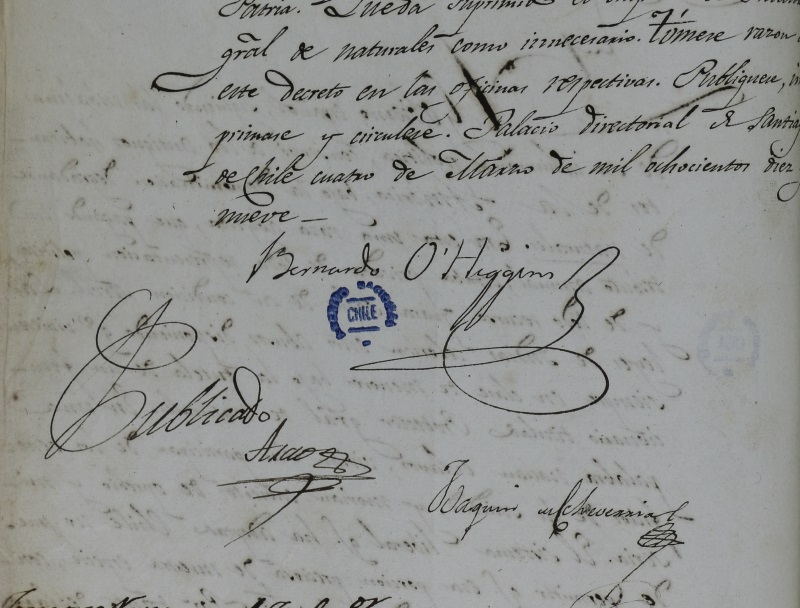 Patria. Queda suprimido el
gral de naturales como innecesario. Tómese razon
este decreto en las oficinas respectivas. Publiquese, im
primase y circulese. Palacio directorial de Santia
de Chile cuatro de Marzo de mil ochocientos diez
nueve —
Bernardo O'Higgins
ARCHIVO NACIONAL
CHILE
Publicado
Joaquin de Echeverria